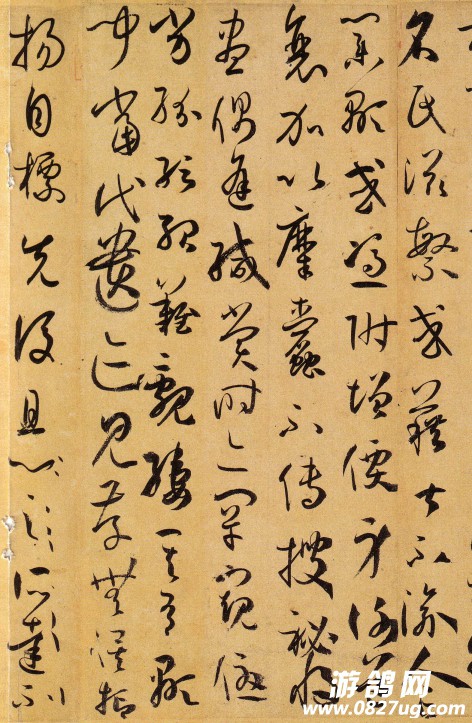 名氏滋繁或藉甚不渝人
業顯或憑附增價身謝道
衰加以糜蠹不傳搜秘將
盡偶逢緘賞時亦罕窺優
劣紛紜殆難覼縷其有顯
聞當代遺跡見存無俟抑
揚自標先後且
游鸽网
www.0827ug.com